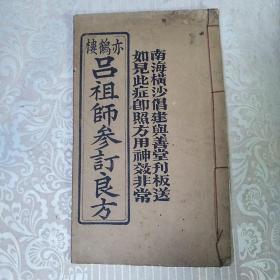 南海橫沙倡建與善堂刋板送
如見此症卽照方用神效非常
亦鶴樓
呂祖師參訂良方